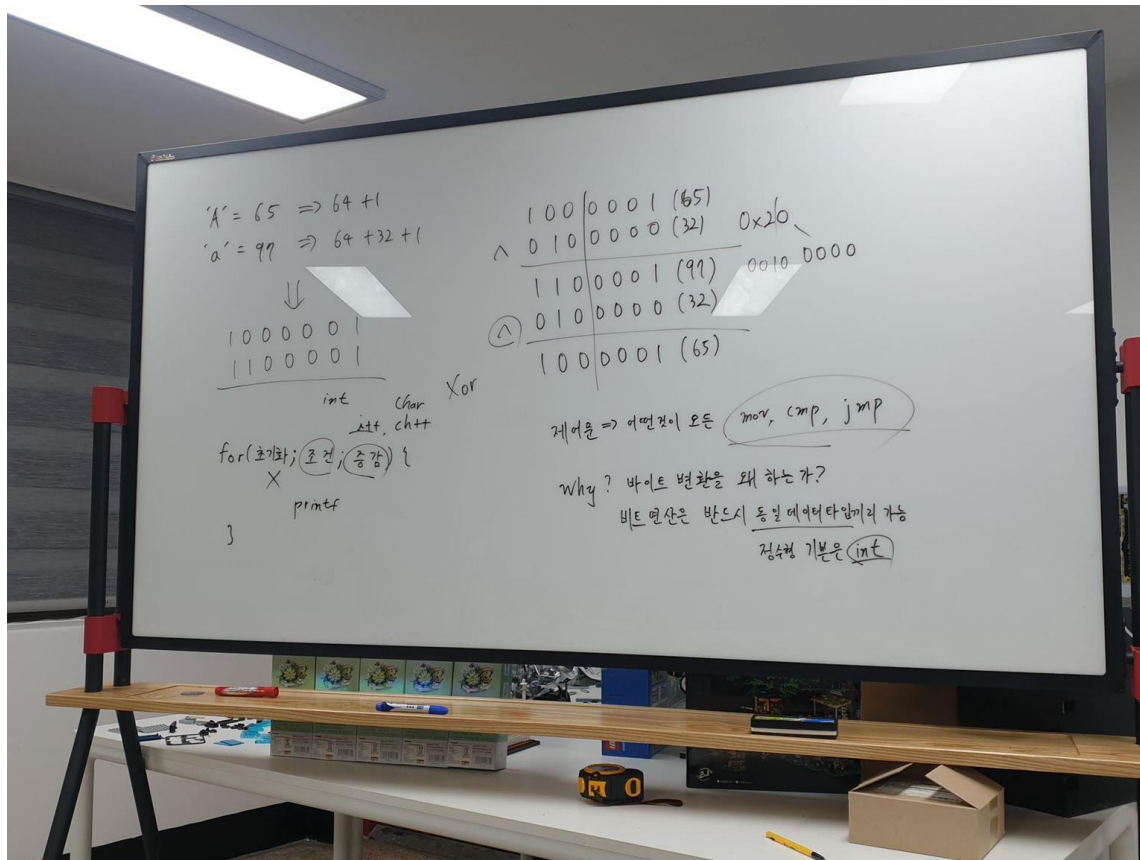 'A' = 65 => 64 + 1
'a' = 97 => 64 + 32 + 1
⇓
1 0 0 0 0 0 1
1 1 0 0 0 0 1
int
char
i++, ch++
Xor
for(초기화; 조건; 증감) {
X
printf
}
1 0 0 0 0 0 1 (65)
^ 0 1 0 0 0 0 0 (32) 0x20
1 1 0 0 0 0 1 (97) 0010 0000
^ 0 1 0 0 0 0 0 (32)
1 0 0 0 0 0 1 (65)
제어문 => 어떤것이 오든 mov, cmp, jmp
Why? 바이트 변환을 왜 하는가?
비트 연산은 반드시 동일 데이터타입끼리 가능
정수형 기본은 int